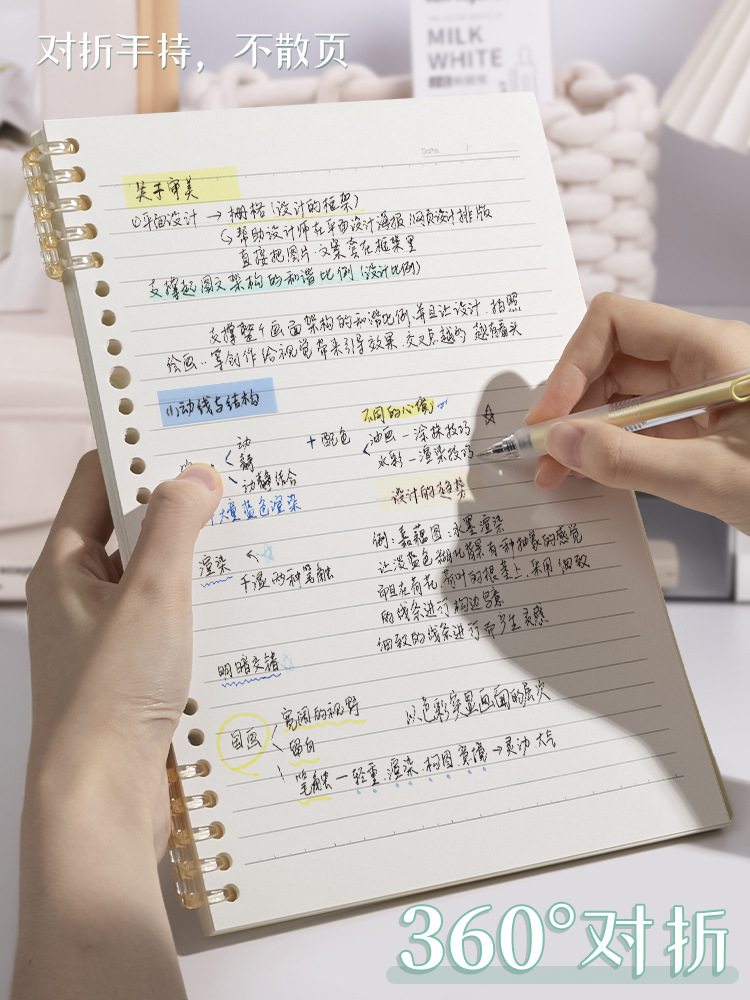 对折手持，不散页
MILK
WHITE
Date.
关于审美
①平面设计 → 栅格（设计的框架）
↳帮助设计师在平面设计海报、网页设计排版
直接把图片文案套在框架里
支撑起图文架构的和谐比例（设计比例）
支撑整个画面架构的和谐比例，并且让设计、拍照
绘画..等创作给视觉带来引导效果，交叉点越多 越有看头
(1)动线与结构
不同的心像
动
静
动静结合
+ 配色
油画 — 涂抹技巧
水彩 — 渲染技巧
大量蓝色渲染
设计的趋势
渲染
干湿两种笔触
例：嘉藕图：水墨渲染
让淡蓝色糊化背景有种抽象的感觉
而且在荷花 荷叶的根茎上，采用细致
的线条进行构边写意
细致的线条进行而生灵感
明暗交错
国画
宽阔的视野
留白
笔触 — 轻重.渲染.构图.意境 → 灵动 大气
以色彩突显画面的层次
360°对折